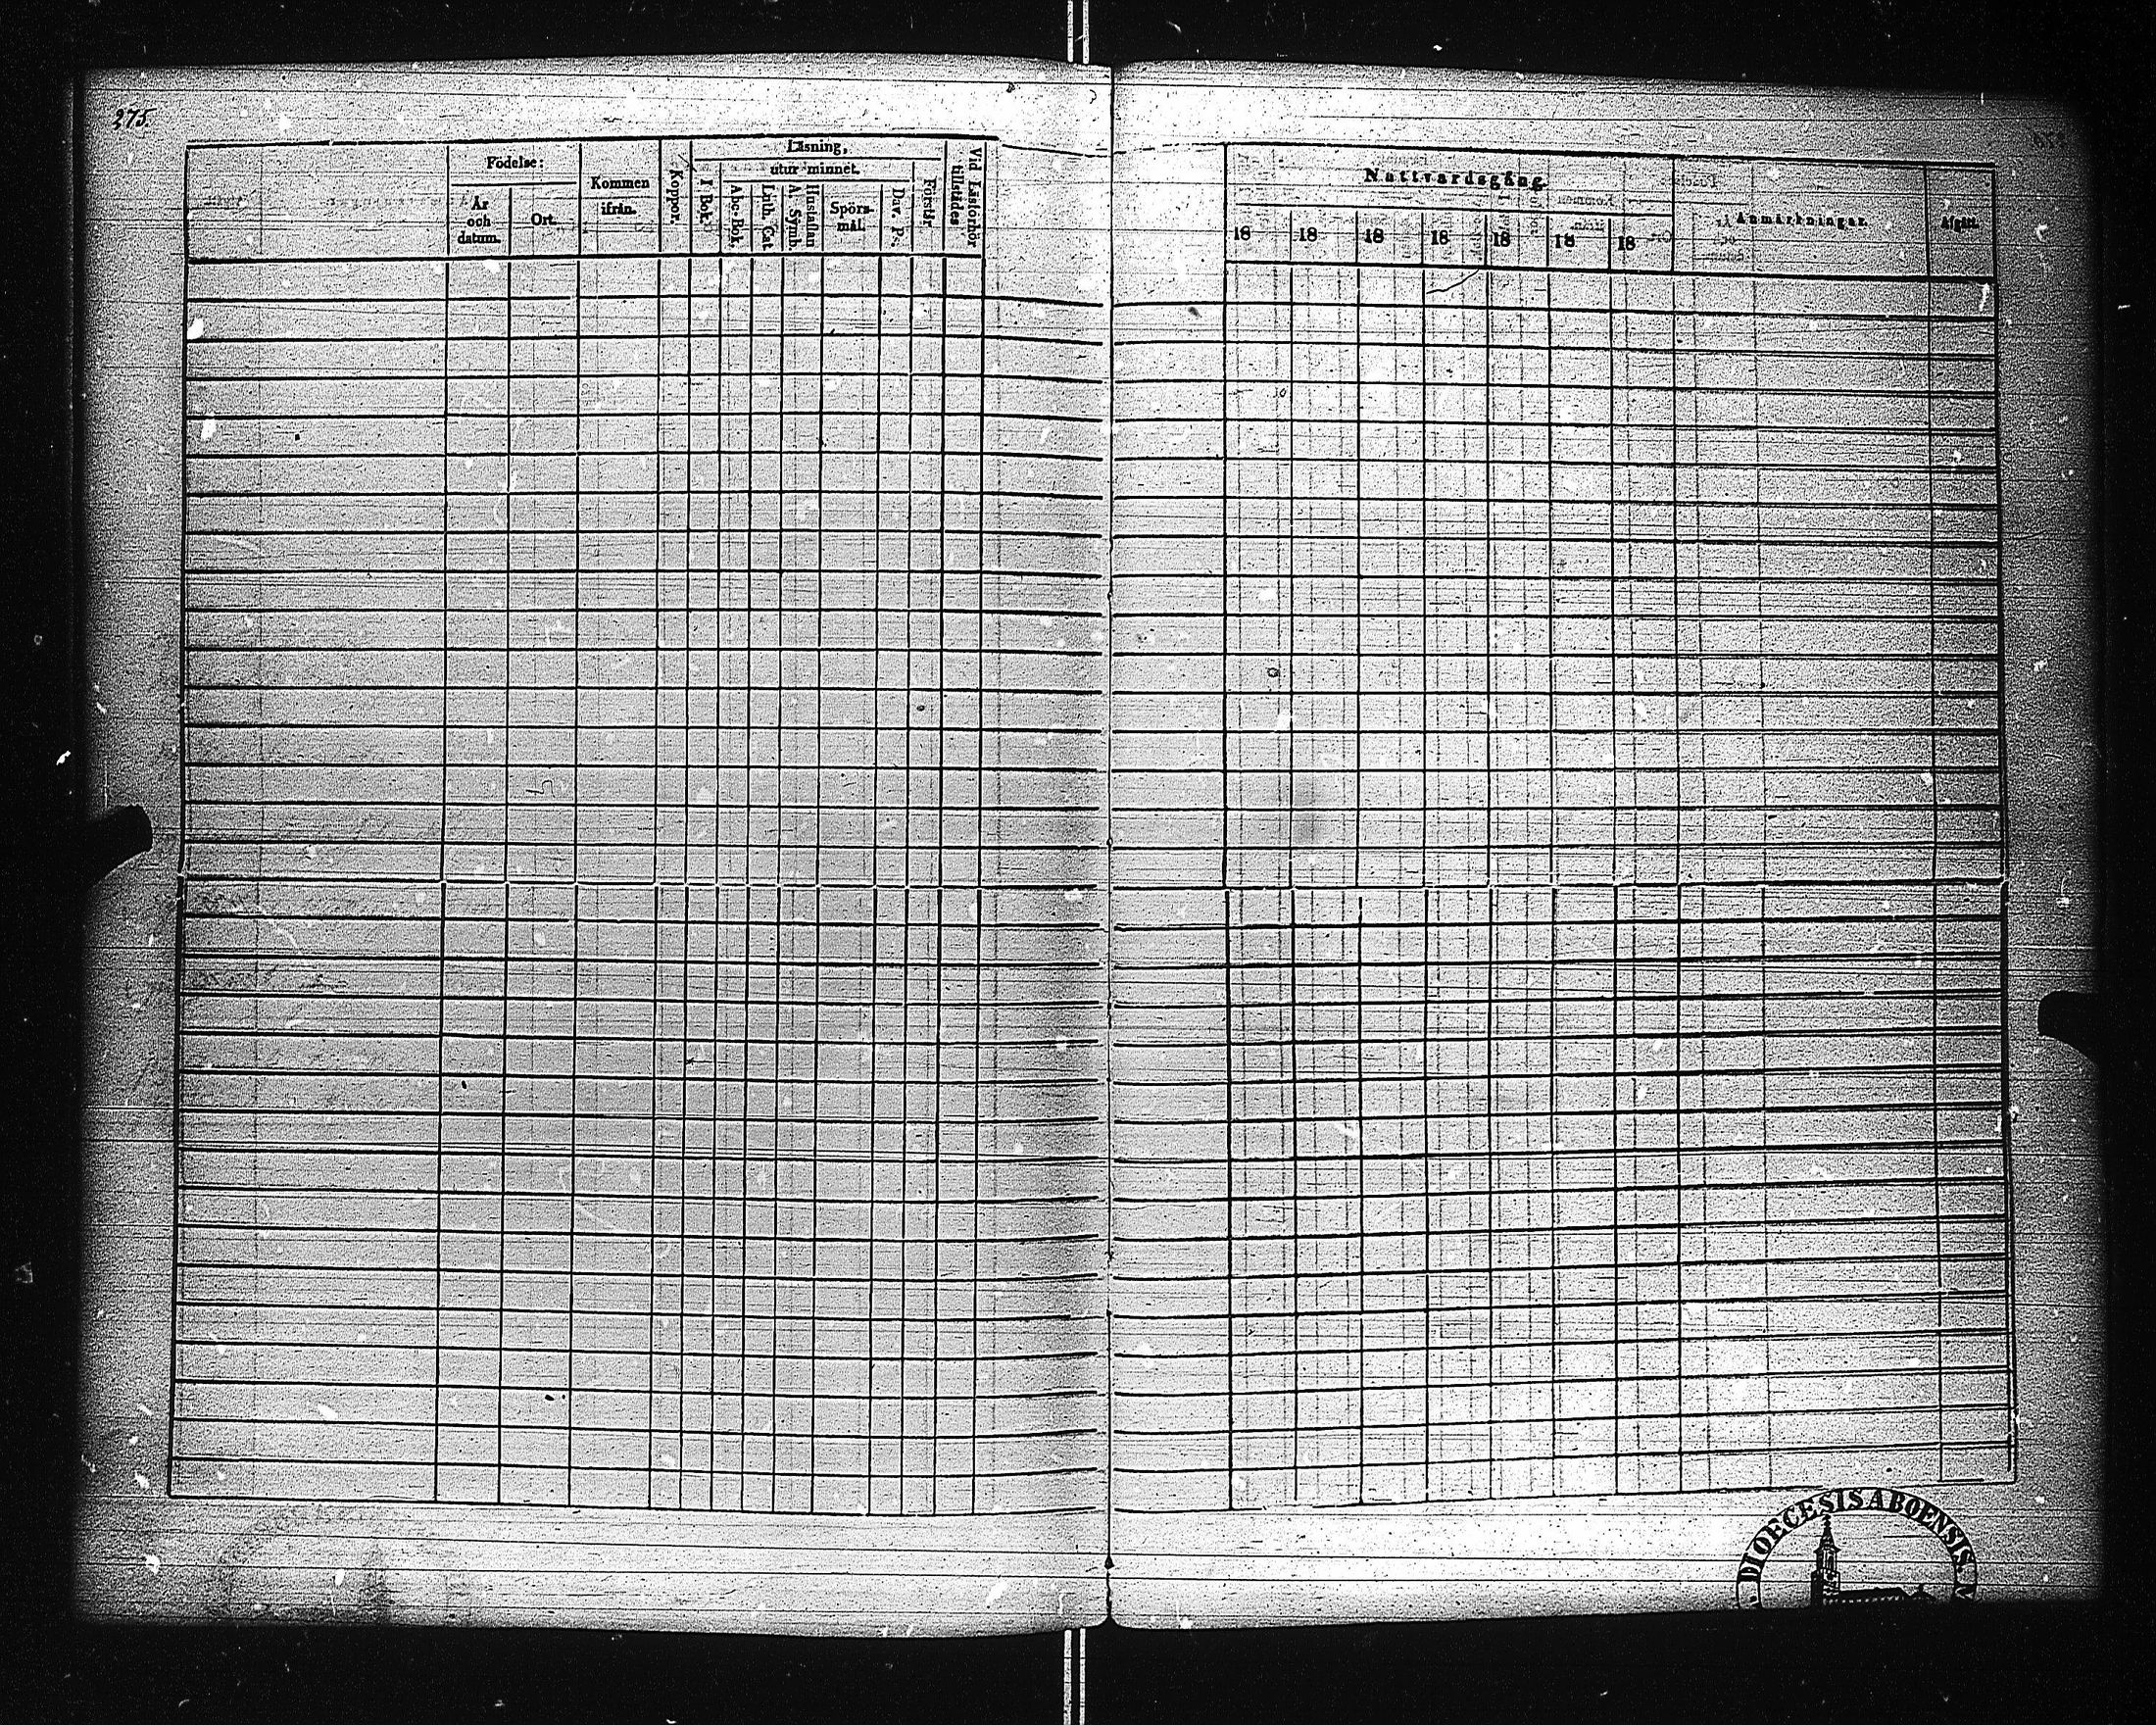 275.
Födelse:
År och datum.
Ort.
Kommen ifrån.
Koppor.
Läsning,
I Bok.
utur minnet.
Abc-Bok.
Luth. Cat.
A. Symb.
Hustaflan
Spörsmål.
Dav. Ps.
Förstår.
Vid Läsförhör tillstädes
Nattvardsgång.
18 18 18 18 18 18 18
Anmärkningar.
Afgått.
DIOECESIS ABOENSIS